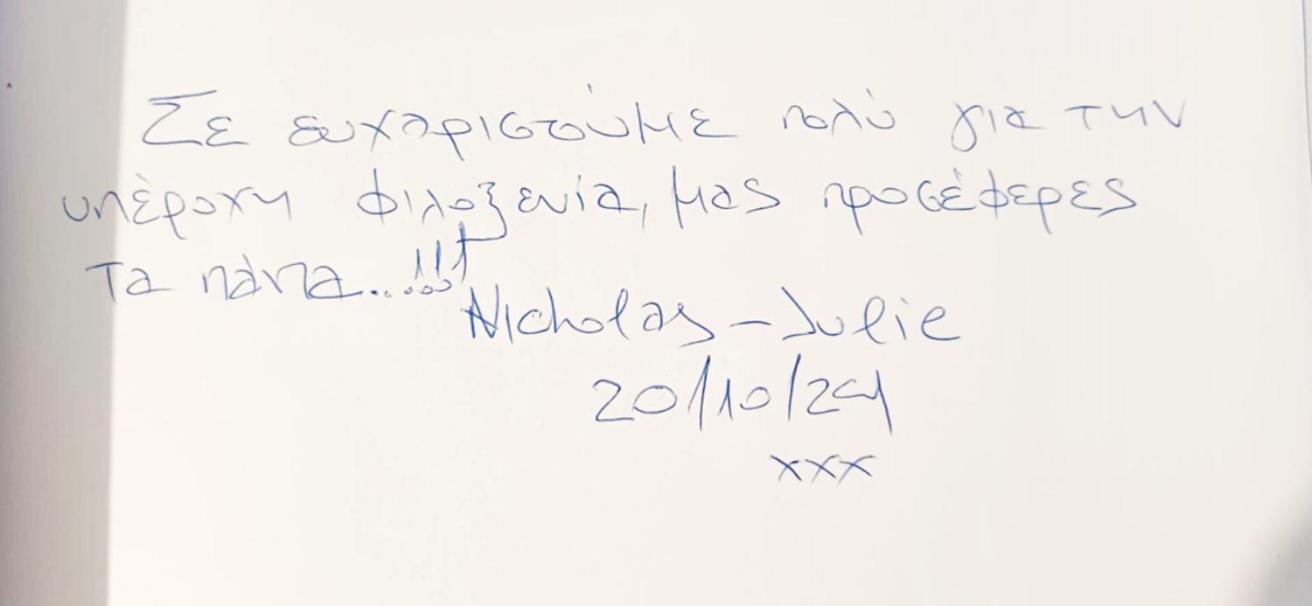 Σε ευχαριστούμε πολύ για την
υπέροχη φιλοξενία, μας προσέφερες
τα πάντα...!!!
Nicholas - Julie
20/10/24
xxx